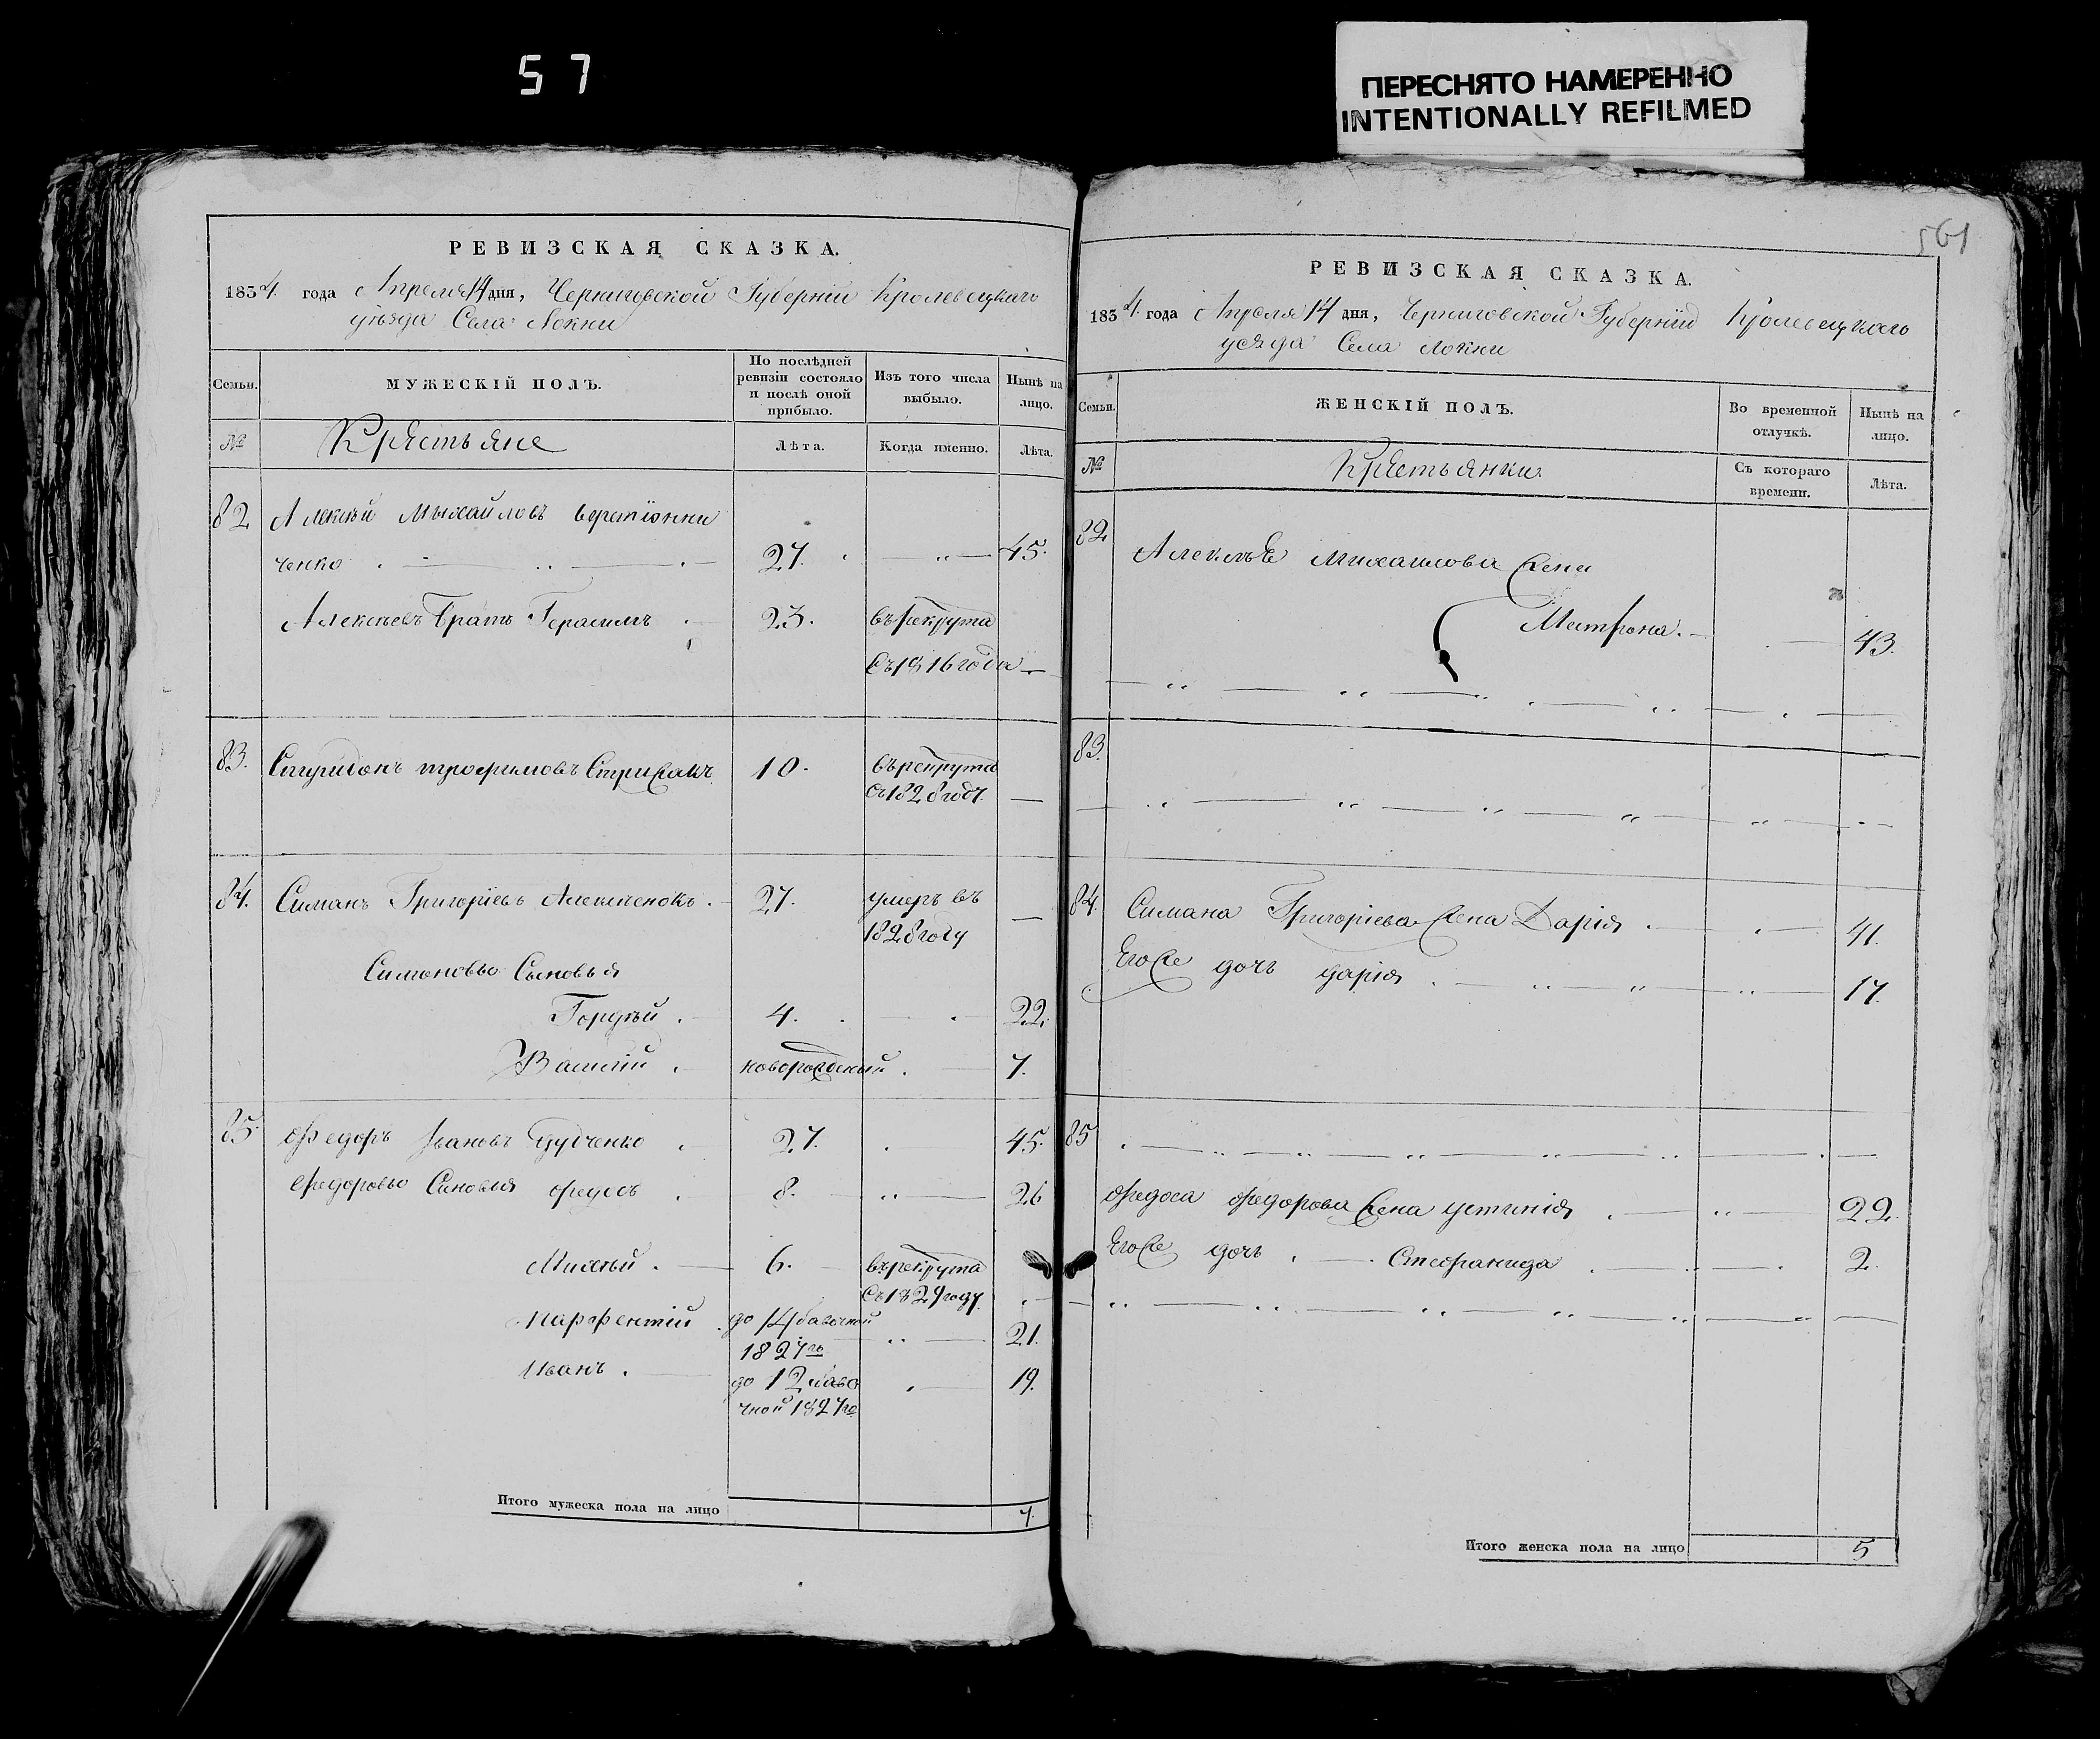 57
ПЕРЕСНЯТО НАМЕРЕННО
INTENTIONALLY REFILMED
561
РЕВИЗСКАЯ СКАЗКА.
1834. года Апреля 14 дня, Черниговской Губерніи Кролевецкаго
уѣзда Села Локни
Семьи. МУЖЕСКІЙ ПОЛЪ. По послѣдней ревизіи состояло и послѣ оной прибыло. Изъ того числа выбыло. Нынѣ на лицо.
№ Крястьяне Лѣта. Когда именно. Лѣта.
82 Алексѣй Мыхайловъ
ченко 27. 45.
Алексѣевъ братъ Герасимъ 23. въ рекрута
съ 1816 года
83. Спиридонъ трофимовъ Стрижакъ 10. въ рекрута
съ 1828 году.
84. Симанъ Григоріевъ 27. умеръ въ
1828 году
Симоновы Сыновья
Гордѣй 4. 22.
Василій новорожденный 7.
85. Федоръ Ивановъ 27. 45.
Федоровы Синовья Федосъ 8. 26
Михѣй 6. въ рекрута
съ 1829 году.
Парфентій до 14
1827го 21.
Иванъ до 12 19.
чной 1827го
Итого мужеска пола на лицо 7.
РЕВИЗСКАЯ СКАЗКА.
1834. года Апреля 14 дня, Черниговской Губерніи Кролевецкаго
уезда Села Локни
Семьи. ЖЕНСКІЙ ПОЛЪ. Во временной отлучкѣ. Нынѣ на лицо.
№ Крястьянки. Съ котораго времени. Лѣта.
82. Алексѣя Михайлова жена
Матрона. 43.
83.
84. Симана Григоріева жена Дарія 41.
Егоже дочь дарія 17.
85
Федоса Федорова жена устинія 22.
Егоже дочь Стефанида 2.
Итого женска пола на лицо 5